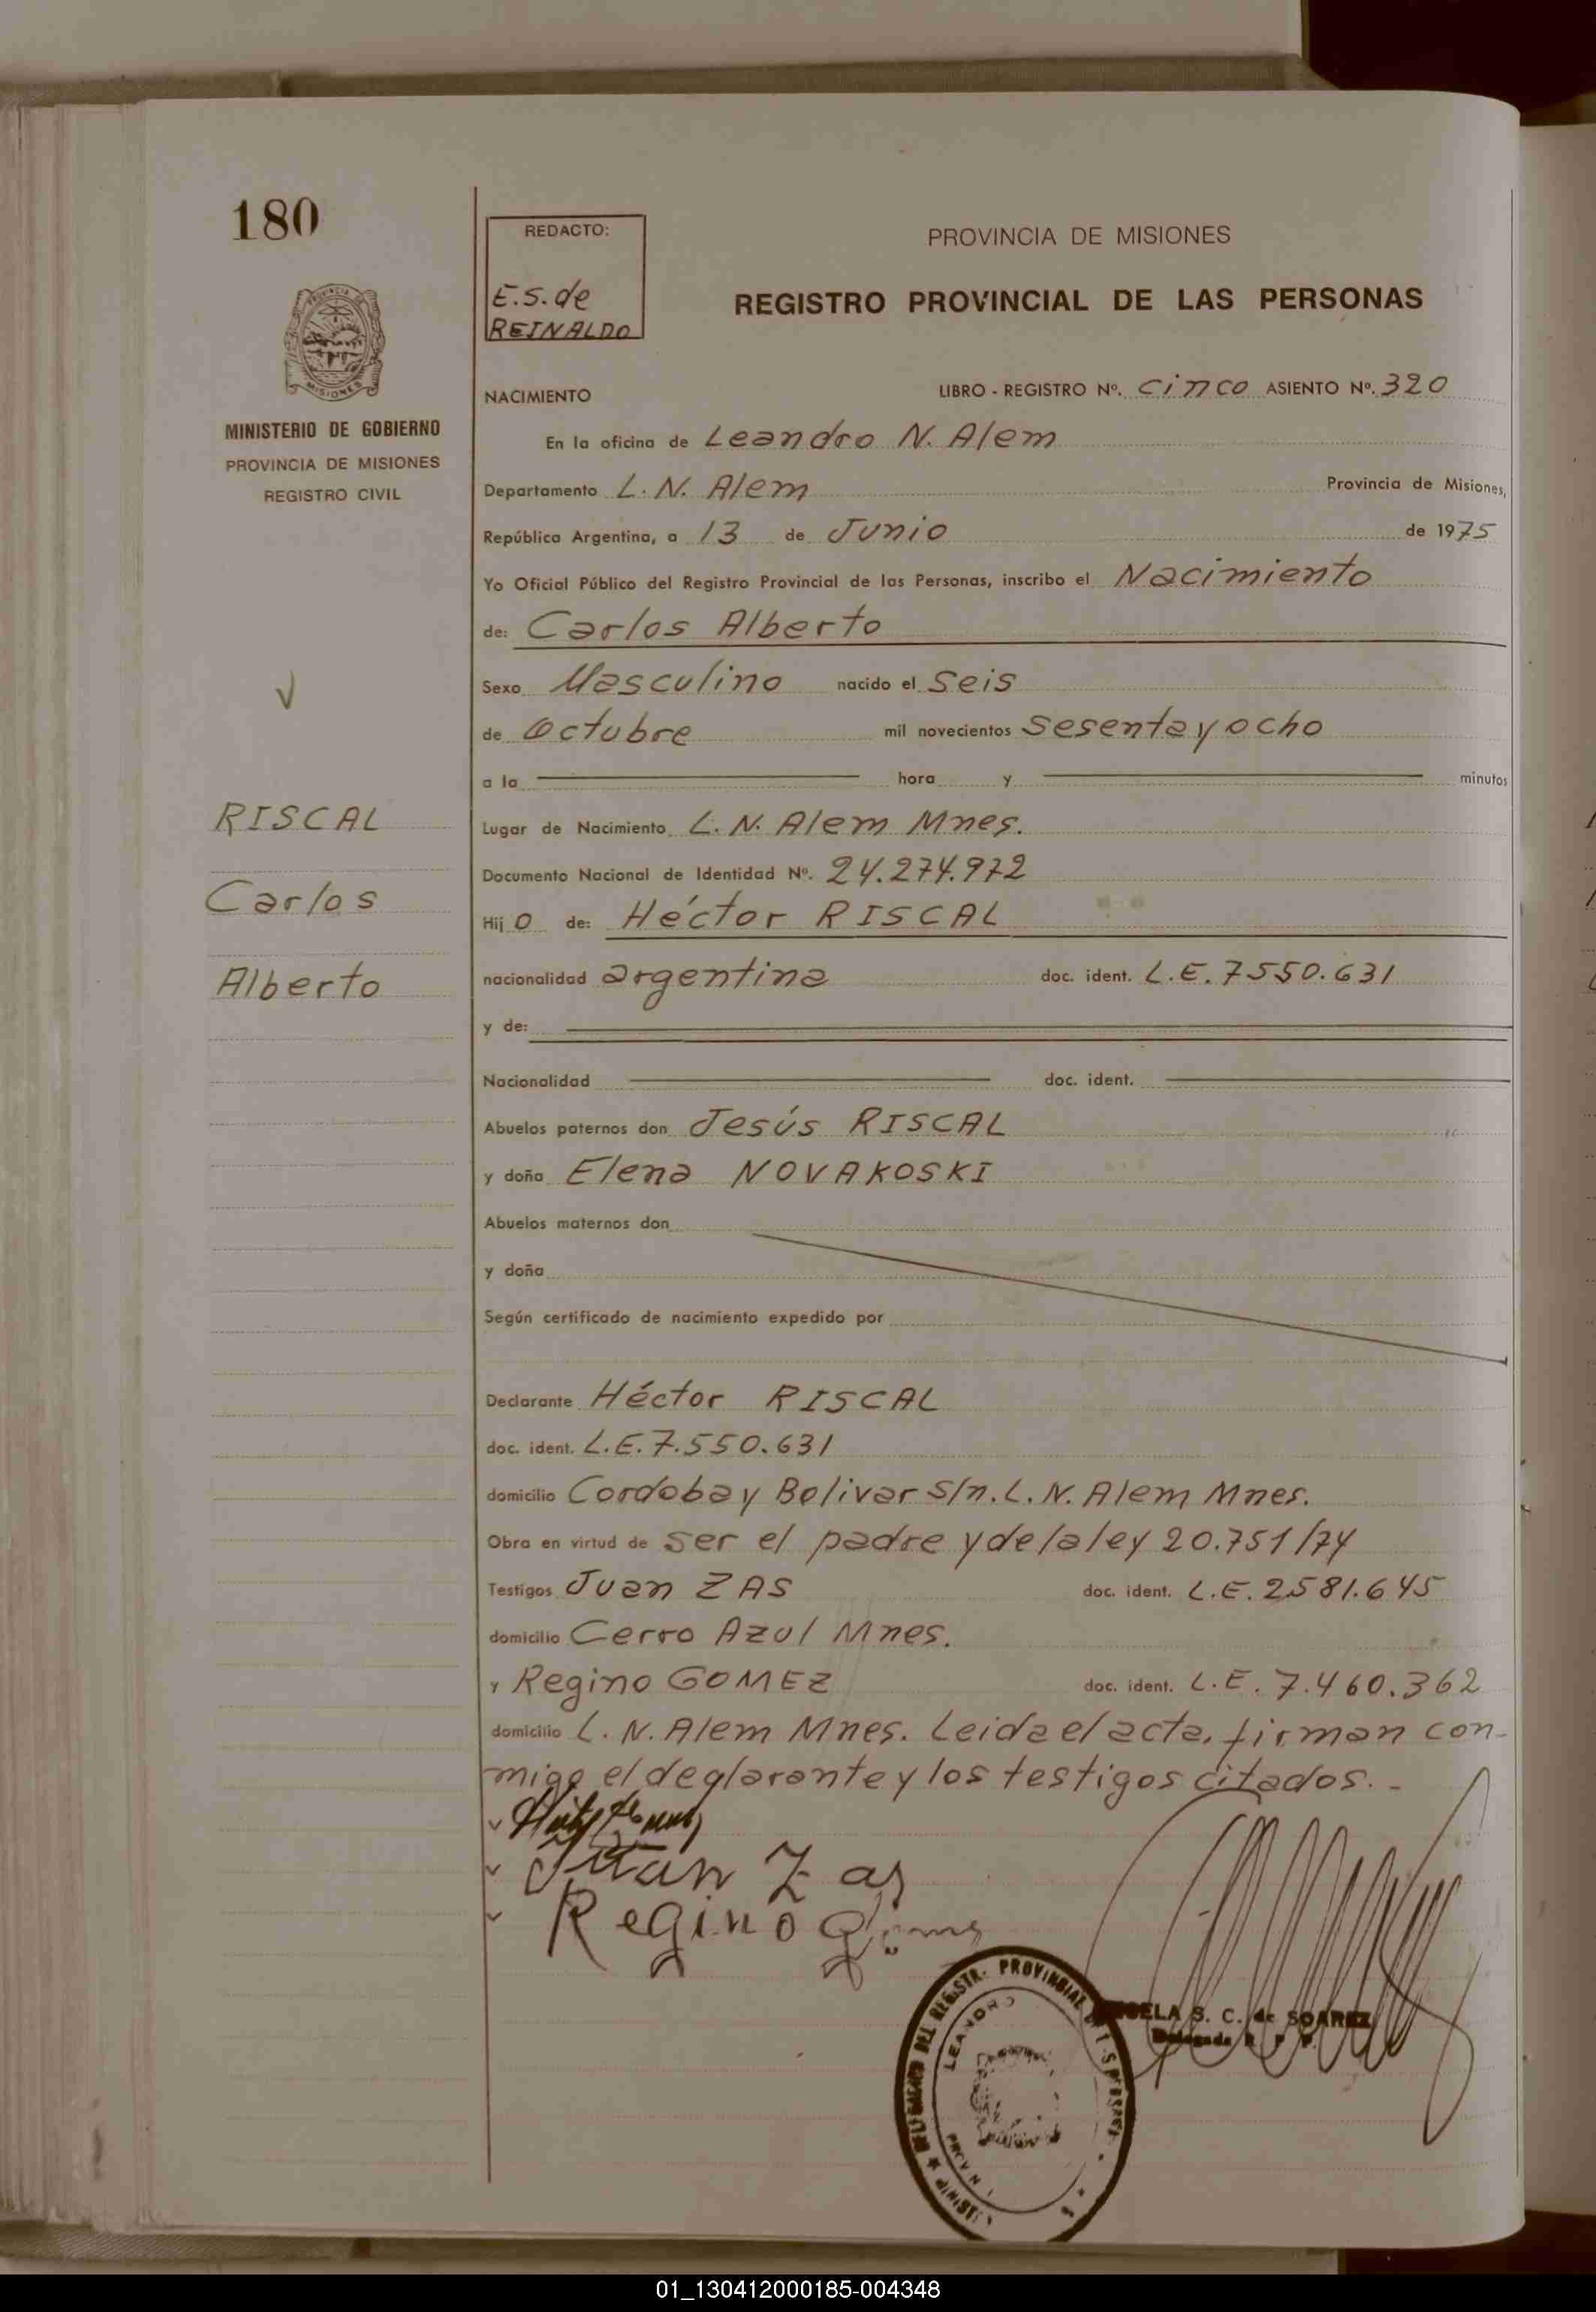 180
REDACTO:
E.S. de
REINALDO
PROVINCIA DE MISIONES
REGISTRO PROVINCIAL DE LAS PERSONAS
MINISTERIO DE GOBIERNO
PROVINCIA DE MISIONES
REGISTRO CIVIL
RISCAL
Carlos
Alberto
NACIMIENTO LIBRO - REGISTRO Nº. cinco ASIENTO Nº. 320
En la oficina de Leandro N. Alem
Departamento L. N. Alem Provincia de Misiones,
República Argentina, a 13 de Junio de 1975
Yo Oficial Público del Registro Provincial de las Personas, inscribo el Nacimiento
de: Carlos Alberto
Sexo Masculino nacido el Seis
de Octubre mil novecientos Sesenta y ocho
a la hora y minutos
Lugar de Nacimiento L. N. Alem Mnes.
Documento Nacional de Identidad Nº. 24.274.972
Hij o de: Héctor RISCAL
nacionalidad argentina doc. ident. L.E. 7550.631
y de:
Nacionalidad doc. ident.
Abuelos paternos don Jesús RISCAL
y doña Elena NOVAKOSKI
Abuelos maternos don
y doña
Según certificado de nacimiento expedido por
Declarante Héctor RISCAL
doc. ident. L.E. 7.550.631
domicilio Cordoba y Bolivar S/n. L. N. Alem Mnes.
Obra en virtud de ser el padre y de la ley 20.751/74
Testigos Juan ZAS doc. ident. L.E. 2581.645
domicilio Cerro Azul Mnes.
y Regino GOMEZ doc. ident. L.E. 7.460.362
domicilio L. N. Alem Mnes. Leida el acta, firman con-
migo el declarante y los testigos citados. -
Juan Zas
Regino
DEL REGISTR. PROVINCIAL
LEANDRO
S. C. de SOAREZ
Delegada
01_130412000185-004348